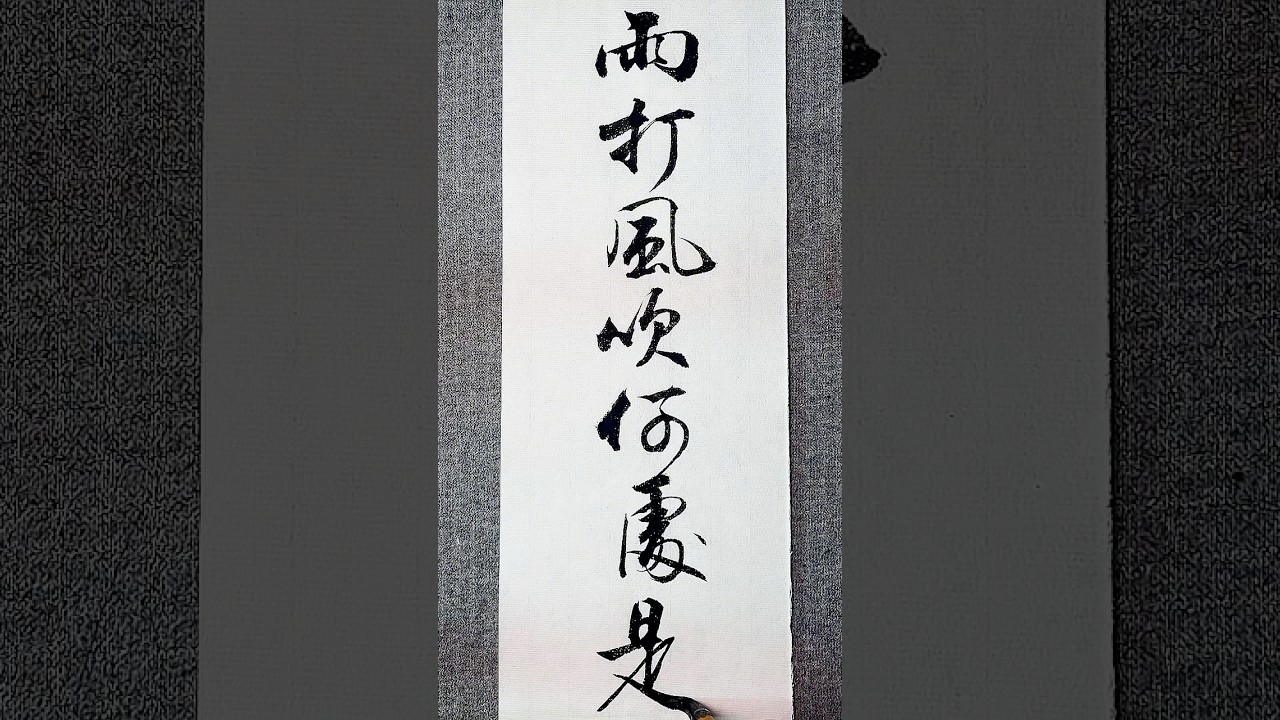 雨打風吹何處是